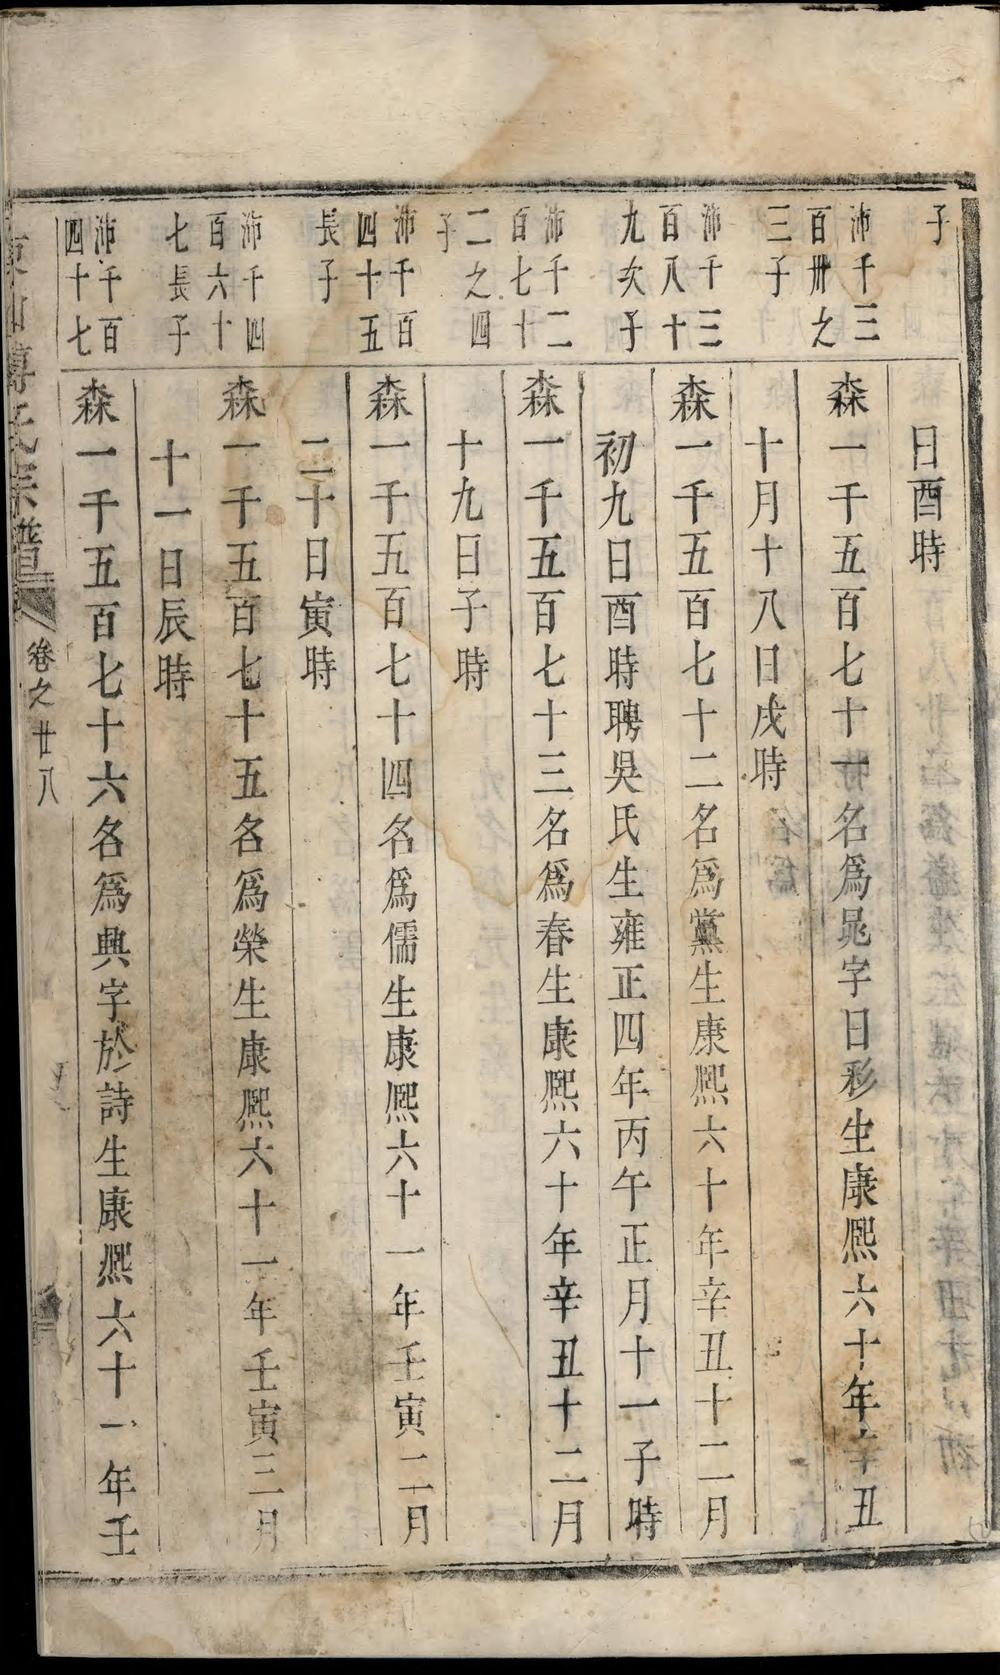 子
日酉時
沛千三
百卅之
三子
森一千五百七十一名爲晁字日彩生康熙六十年辛丑
十月十八日戌時
沛千三
百八十
九次子
森一千五百七十二名爲黨生康熙六十年辛丑十二月
初九日酉時聘吳氏生雍正四年丙午正月十一子時
沛千二
百七十
二之四
子
森一千五百七十三名爲春生康熙六十年辛丑十二月
十九日子時
沛千百
四十五
長子
森一千五百七十四名爲儒生康熙六十一年壬寅二月
二十日寅時
沛千四
百六十
七長子
森一千五百七十五名爲榮生康熙六十一年壬寅三月
十一日辰時
沛千百
四十七
森一千五百七十六名爲興字於詩生康熙六十一年壬
氏宗譜 卷之廿八